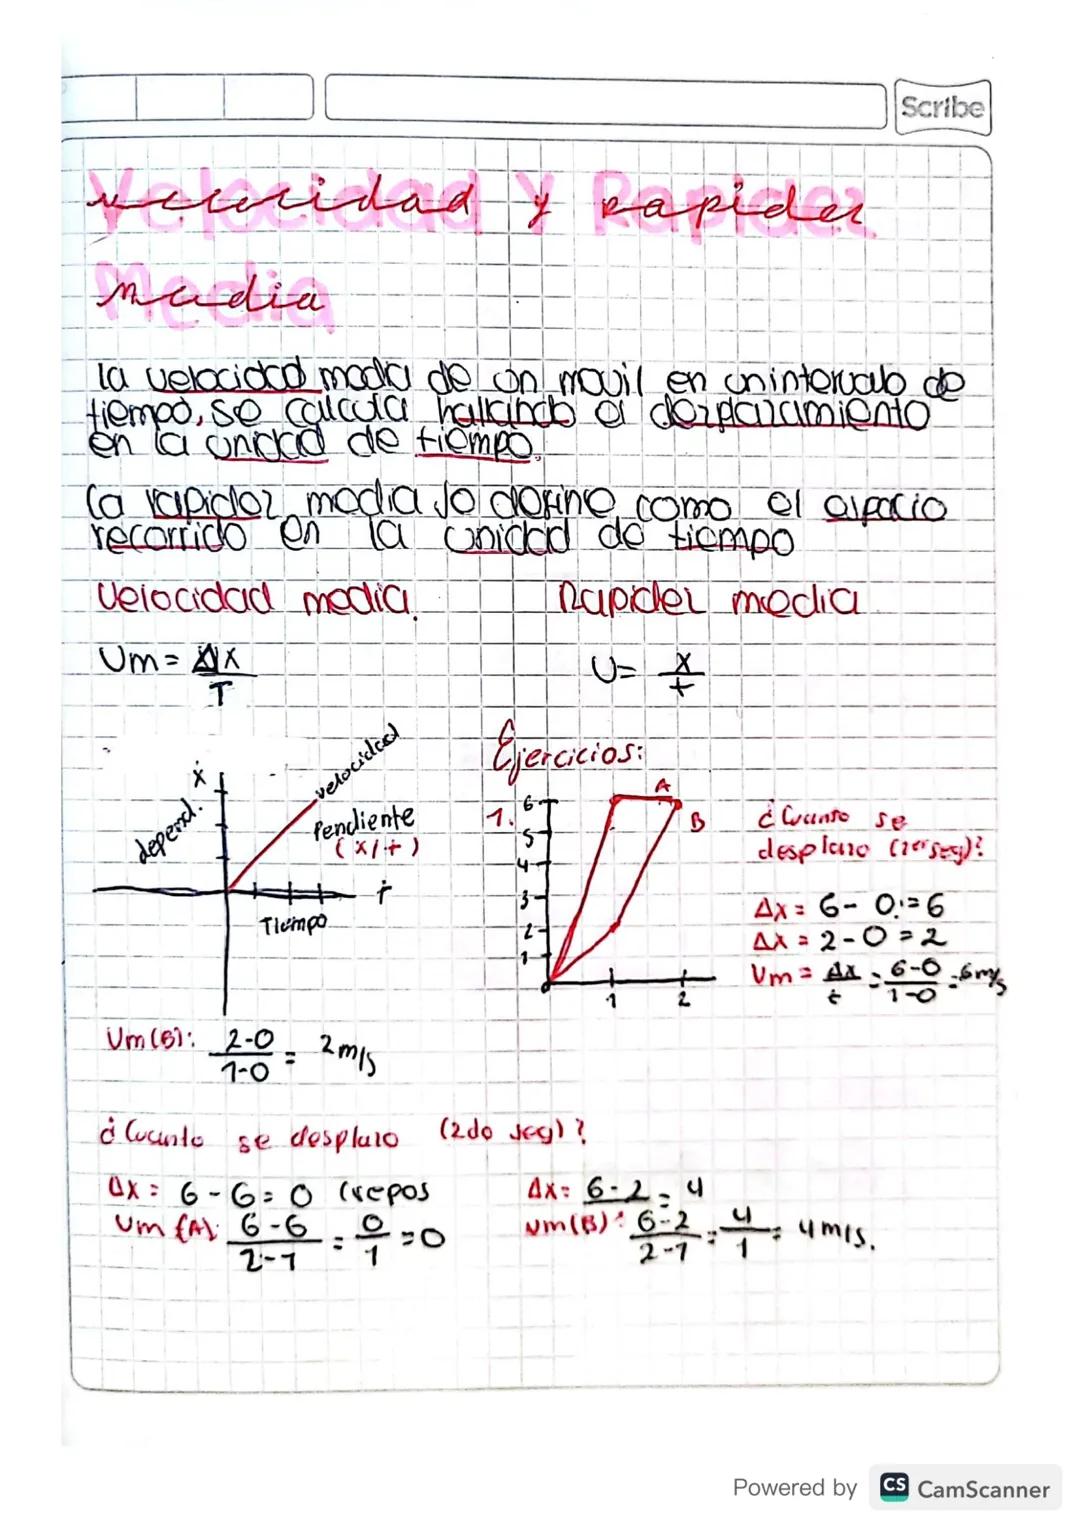 Scribe
Velocidad y Rapidez
Media
la velocidad media de un movil en un intervalo de
tiempo, se calcula hallando el desplazamiento
en la unidad de tiempo.
la rapidez media se define como el espacio
recorrido en la unidad de tiempo
Velocidad media.
Rapidez media
Vm = Δx/T
V = x/t
x
depend.
velocidad
Pendiente
(x/t)
t
Tiempo
Ejercicios:
1.
6
5
4
3
2
1
1 2
A
B
¿Cuanto se
desplazo (1er seg)?
Δx = 6 - 0 = 6
Δx = 2 - 0 = 2
Vm = Δx/t = 6-0/1-0 = 6 m/s
Vm(B): 2-0/1-0 = 2 m/s
¿Cuanto se desplazo (2do seg)?
Δx = 6 - 6 = 0 (repos
Vm (A): 6-6/2-1 = 0/1 = 0
Δx = 6-2 = 4
Vm(B): 6-2/2-1 = 4/1 = 4 m/s.
Powered by CS CamScanner